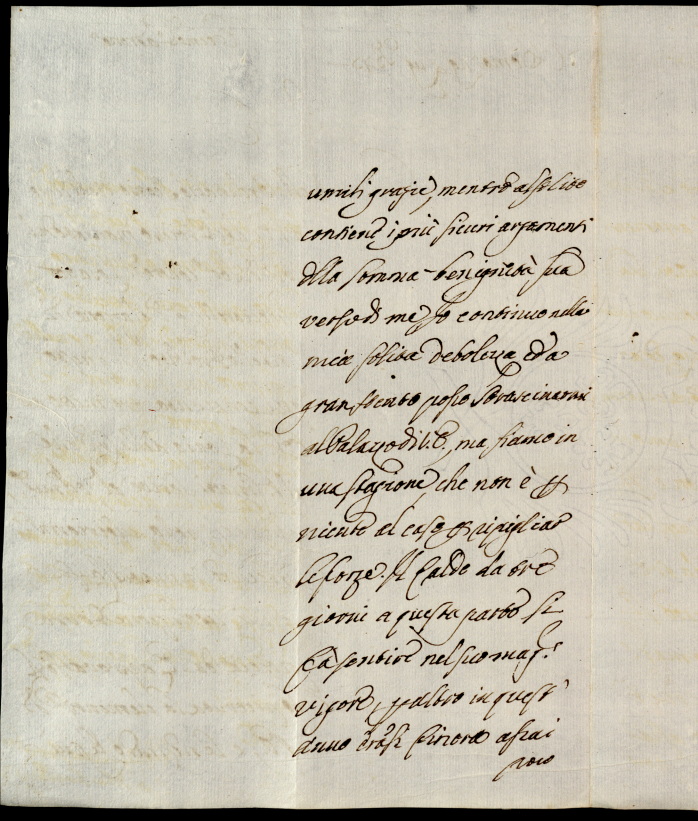 umili grazie, mentre al solito
contiene i più sicuri argomenti
della somma benignità sua
verso di me. Io continuo nella
mia solita debolezza ed a
gran stento posso strascinarmi
al Palazzo di V.E., ma siamo in
una stagione, che non è p
niente al caso p ripigliar
le forze. Il Caldo da tre
giorni a questa parte si
fà sentire nel suo mag.r
vigore, p altro in quest'
anno erasi finora assai
poco